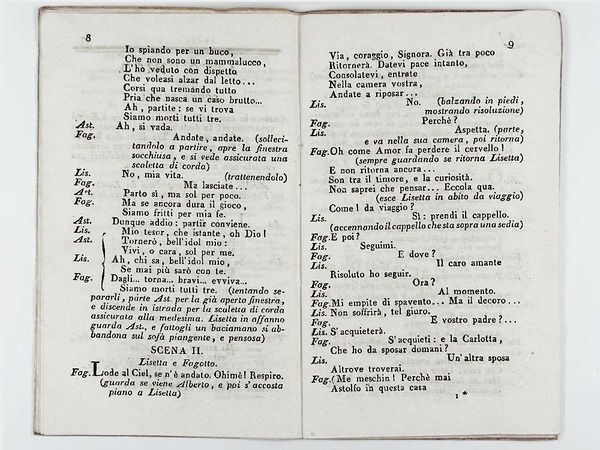 8
Io spiando per un buco,
Che non sono un mammalucco,
L'ho veduto con dispetto
Che voleasi alzar dal letto...
Corsi qua tremando tutto
Pria che nasca un caso brutto...
Ah, partite: se vi trova
Siamo morti tutti tre.
Ast. Ah, si vada.
Fag. Andate, andate. (solleci-
tandolo a partire, apre la finestra
socchiusa, e si vede assicurata una
scaletta di corda)
Lis. No, mia vita. (trattenendolo)
Fag. Ma lasciate...
Ast. Parto sì, ma sol per poco.
Fag. Ma se ancora dura il gioco,
Siamo fritti per mia fe.
Ast. Dunque addio: partir conviene.
Lis. Mio tesor, che istante, oh Dio!
Ast. Tornerò, bell'idol mio:
Vivi, o cara, sol per me.
Lis. Ah, chi sa, bell'idol mio,
Se mai più sarò con te.
Fag. Dagli... torna... bravi... evviva...
Siamo morti tutti tre. (tentando se-
pararli, parte Ast. per la già aperto finestra,
e discende in istrada per la scaletta di corda
assicurata alla medesima. Lisetta in affanno
guarda Ast., e fattogli un baciamano si ab-
bandona sul sofà piangente, e pensosa)
SCENA II.
Lisetta e Fagotto.
Fag. Lode al Ciel, se n'è andato. Ohimè! Respiro.
(guarda se viene Alberto, e poi s'accosta
piano a Lisetta)
9
Via, coraggio, Signora. Già tra poco
Ritornerà. Datevi pace intanto,
Consolatevi, entrate
Nella camera vostra,
Andate a riposar...
Lis. No. (balzando in piedi,
mostrando risoluzione)
Fag. Perchè?
Lis. Aspetta. (parte,
e va nella sua camera, poi ritorna)
Fag. Oh come Amor fa perdere il cervello!
(sempre guardando se ritorna Lisetta)
E non ritorna ancora...
Son tra il timore, e la curiosità.
Non saprei che pensar... Eccola qua.
(esce Lisetta in abito da viaggio)
Come! da viaggio?
Lis. Sì: prendi il cappello.
(accennando il cappello che sta sopra una sedia)
Fag. E poi?
Lis. Seguimi.
Fag. E dove?
Lis. Il caro amante
Risoluto ho seguir.
Fag. Ora?
Lis. Al momento.
Fag. Mi empite di spavento... Ma il decoro...
Lis. Non soffrirà, tel giuro.
Fag. E vostro padre?...
Lis. S'acquieterà.
Fag. S'acquieti: e la Carlotta,
Che ho da sposar domani?
Lis. Un'altra sposa
Altrove troverai.
Fag. (Me meschin! Perchè mai
Astolfo in questa casa
1 *